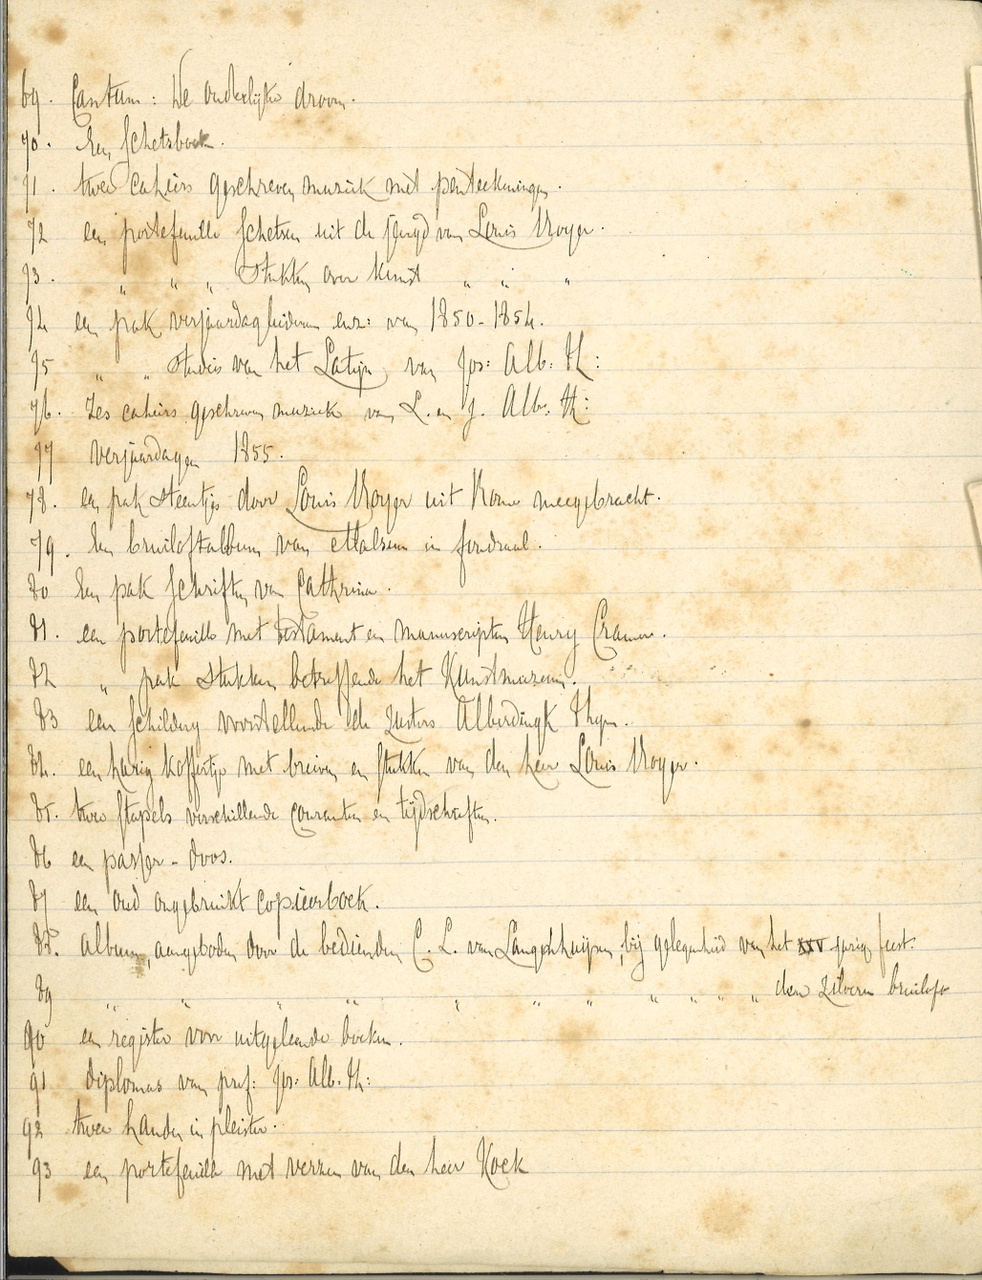 69. Cantum: De ouderlijke droom.
70. Een schetsboek.
71. twee cahiers geschreven muziek met penteekeningen.
72 een portefeuille schetsen uit de jeugd van Louis Royer.
73. " " " Stukken over kunst " " "
74 een pak verjaardagliederen enz: van 1850-1854.
75 " " studies van het Latijn van Jos: Alb: Th:
76. Zes cahiers geschreven muziek van L. en J. Alb: Th:
77 verjaardagen 1855.
78. een pak steentjes door Louis Royer uit Rome meegebracht.
79. Een bruiloftalbum van in foudraal.
80 Een pak schriften van Cathrina.
81. een portefeuille met testament en manuscripten Henry Cramer.
82 " pak stukken betreffende het Kunstmuzeum.
83 een schildery voorstellende de zusters Alberdingk Thijm.
84. een harig koffertje met brieven en stukken van den heer Louis Royer.
85. twee stapels verschillende couranten en tijdschriften.
86 een passer-doos.
87 een oud ongebruikt copieerboek.
88. Album, aangeboden door de bedienden C. L. van Langenhuijsen, bij gelegenheid van het XXV jarig feest.
89 " " " " " " " " " " " den zilveren bruiloft
90 een register voor uitgeleende boeken.
91 diplomas van prof: Jos: Alb. Th:
92 twee handen in pleister.
93 een portefeuille met verzen van den heer Koek